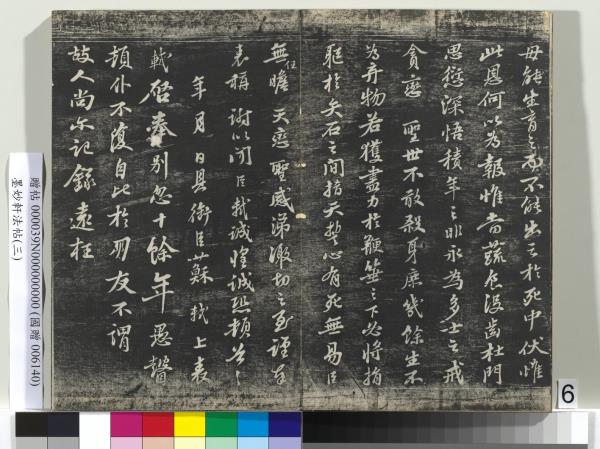 母能生育之而不能出之於死中伏惟
此恩何以為報惟當蔬食沒齒杜門
思愆深悟積年之非永為多士之戒
貪戀 聖世不敢殺身庶幾餘生不
為弃物若獲盡力於鞭箠之下必將捐
軀於矢石之間指天誓心有死無易臣
無任瞻 天戀聖威涕激切之至謹奉
表稱 謝以聞臣軾誠惶誠恐頓首
年月 日具銜臣蘇 軾上表
軾啓奉別忽十餘年愚瞽
頓仆不復自比於朋友不謂
故人尚尔記錄遠枉
贈帖 0000039N000000000 (國贈 006140)
墨妙軒法帖(三)
6